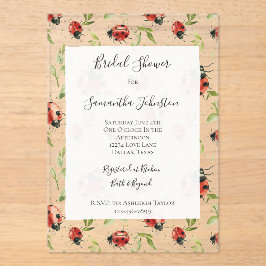 Bridal Shower
For
Samantha Johnston
Saturday June 4th
One O'Clock In the
Afternoon
12274 Love Lane
Dallas, Texas
Registered at Bed on
Bath & Beyond
R.S.V.P. to: Ashleigh Taylor